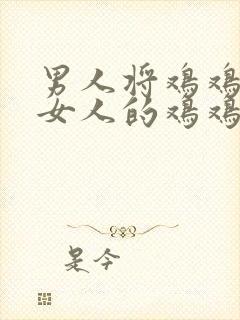 男人将鸡鸡
女人的鸡鸡
是今